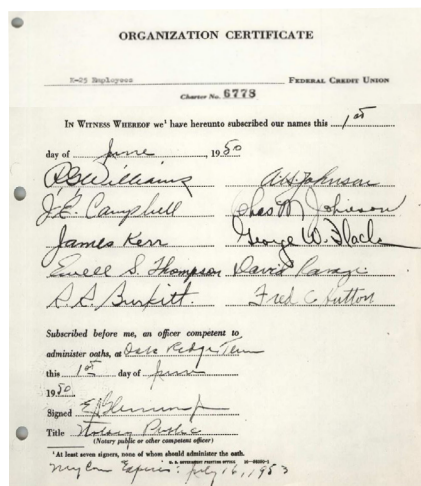 ORGANIZATION CERTIFICATE
K-25 Employees FEDERAL CREDIT UNION
Charter No. 6778
IN WITNESS WHEREOF we¹ have hereunto subscribed our names this 1st
day of June, 1950
R.G. Williams A.H. Johnson
J.E. Campbell Chas M Johnson
James Kerr George W. Black
Ewell S. Thompson David
Burkitt. Fred C Hutton
Subscribed before me, an officer competent to
administer oaths, at Oak Ridge Tenn
this 1st day of June
1950.
Signed
Title Notary Public
(Notary public or other competent officer)
¹At least seven signers, none of whom should administer the oath.
U. S. GOVERNMENT PRINTING OFFICE
My Com Expires: July 16, 1953